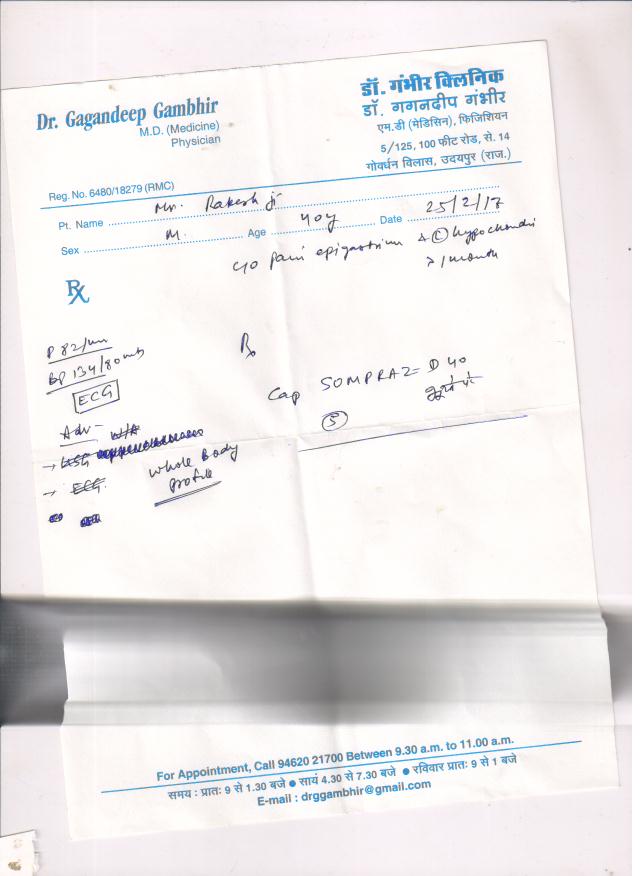 Dr. Gagandeep Gambhir
M.D. (Medicine)
Physician
डॉ. गंभीर क्लिनिक
डॉ. गगनदीप गंभीर
एम.डी (मेडिसिन), फिजिशियन
5/125, 100 फीट रोड, से. 14
गोवर्धन विलास, उदयपुर (राज.)
Reg. No. 6480/18279 (RMC)
Pt. Name Mr. Rakesh ji
Sex M. Age 40y Date 25/2/17
c/o pain epigastrium & Ⓛ hypochondri
> 1 month
Rx
P 82/mn
BP 134/80
ECG
Rx
Cap SOMPRAZ-D 40
⑤
Adv-
→ USG
→ ECG.
Whole Body
profile
For Appointment, Call 94620 21700 Between 9.30 a.m. to 11.00 a.m.
समय : प्रातः 9 से 1.30 बजे ● सायं 4.30 से 7.30 बजे ● रविवार प्रातः 9 से 1 बजे
E-mail : drggambhir@gmail.com